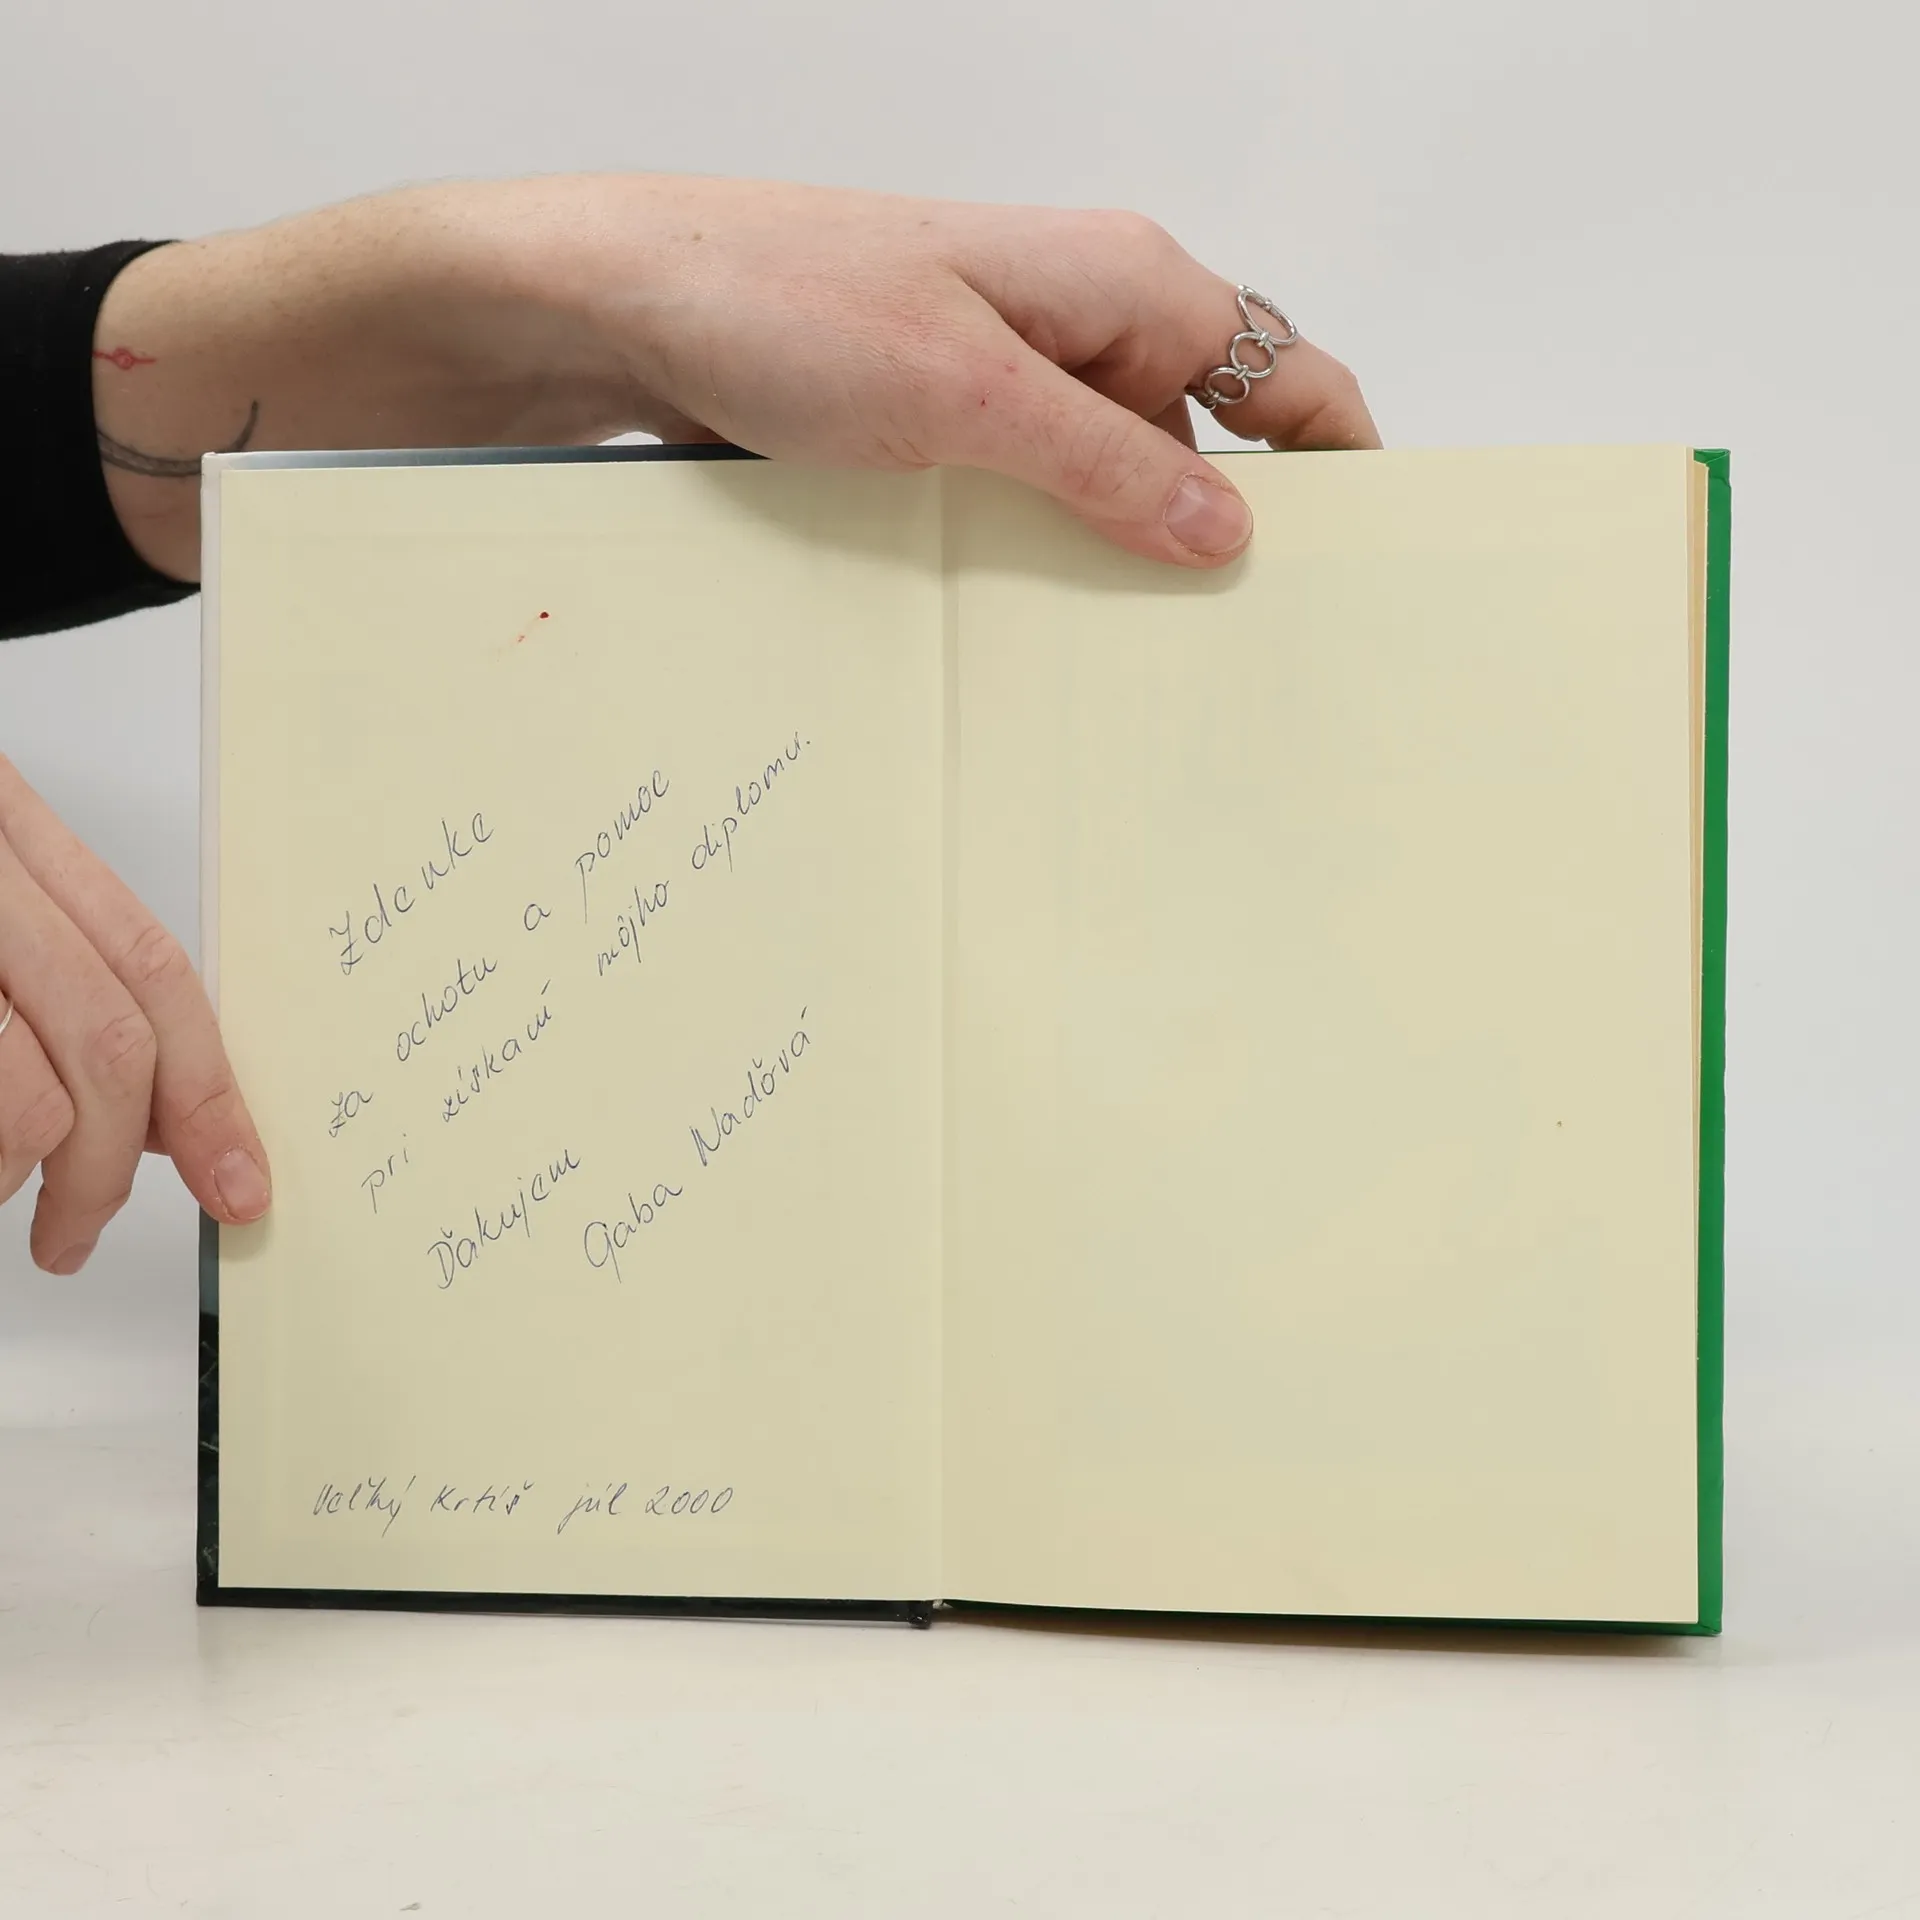 Zdenke
za ochotu a pomoc
pri získaní môjho diplomu.
Ďakujem
Gaba Naďová
Veľký Krtíš júl 2000